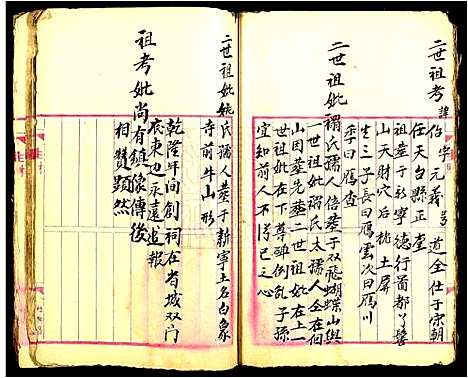 二世祖考
諱伯字元義号道全仕于宗朝
任天台縣正堂
祖葬于永寧德行啚都丫髻
山天財穴后桃土屏
生三子長曰鴈雲次曰鴈川
季曰鴈杳
二世祖妣
禤氏孺人偣葬于双飛蝴蝶山與
一世祖妣禤氏太孺人仝在個
山因葬先葬二世祖妣在上一
世祖妣在下尊碑例乱子孫
宜知前人不得已之心
二世祖妣
姚氏孺人葬于新寧土名白象
寺前牛山形
祖考妣尚有鎮像傳後
乾隆年间創祠在省城双门
底東边永遠追報
相贊顕然